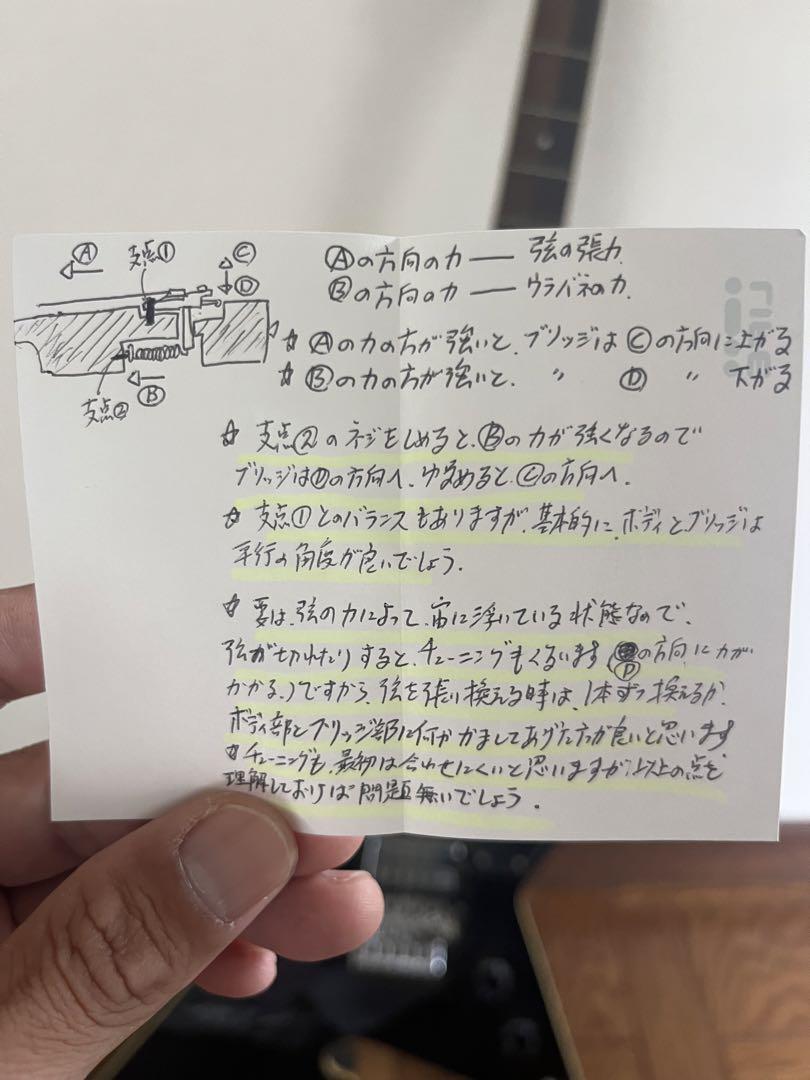 Ⓐ 支点① Ⓒ
Ⓓ
支点② Ⓑ
Ⓐの方向の力 ― 弦の張力
Ⓑの方向の力 ― ウラバネの力.
☆ Ⓐの力の方が強いと、ブリッジはⒸの方向に上がる
☆ Ⓑの力の方が強いと、 〃 Ⓓ 〃 下がる
☆ 支点②のネジをしめると、Ⓑの力が強くなるので
ブリッジはⒹの方向へ、ゆるめると、Ⓒの方向へ.
☆ 支点①とのバランスもありますが、基本的に、ボディとブリッジは
平行の角度が良いでしょう.
☆ 要は、弦の力によって、宙に浮いている状態なので、
弦が切れたりすると、チューニングもくるいます(Ⓓの方向に力が
かかる.)ですから、弦を張り換える時は、1本ずつ換えるか、
ボディ部とブリッジ部に何かかましてあげた方が良いと思います
☆チューニングも、最初は合わせにくいと思いますが、以上の点を
理解しておけば問題無いでしょう.